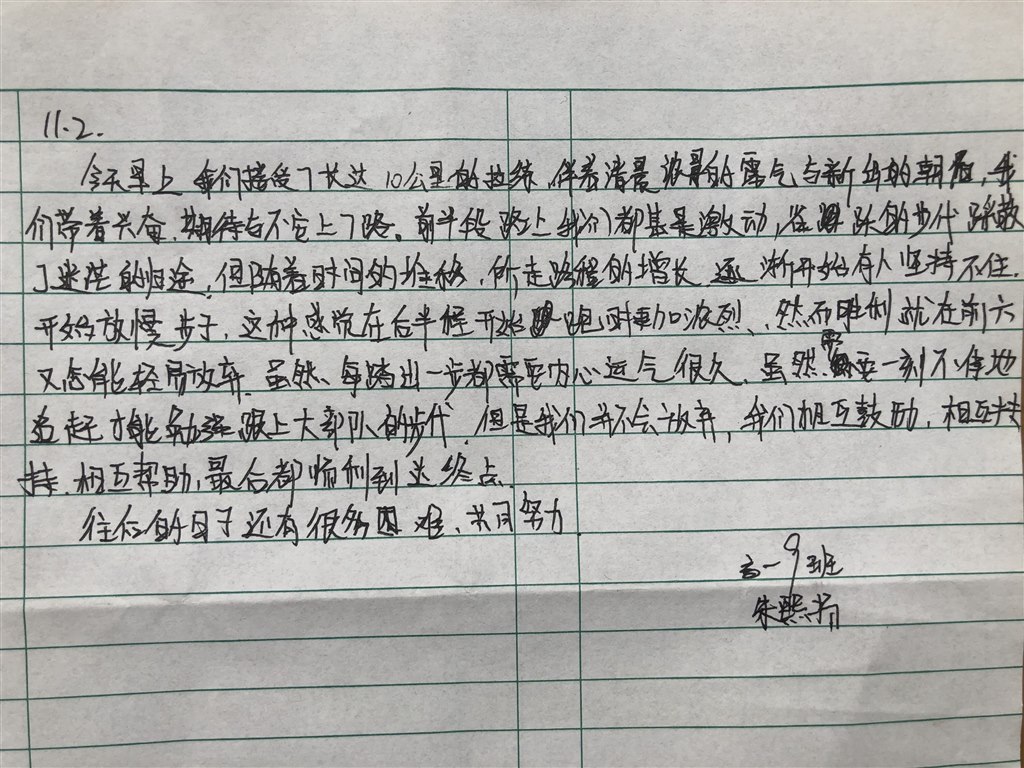 11.2.
今天早上 我们接受了长达10公里的拉练,伴着清晨浓浓的雾气与新升的朝霞,我
们带着兴奋、期待与不安上了路。前半段路上我们都甚是激动,雀跃的步伐踩散
了迷茫的归途,但随着时间的推移,所走路程的增长 逐渐开始有人坚持不住,
开始放慢步子,这种感觉在后半程开始跑时更加浓烈、然而胜利就在前方
又怎能轻易放弃 虽然、每踏出一步都需要内心运气很久、虽然需要一刻不停地
追赶才能勉强跟上大部队的步伐,但是我们并不会放弃,我们相互鼓励,相互扶
持、相互帮助,最后都顺利到达终点
往后的日子还有很多困难、共同努力
高一9班
朱熙